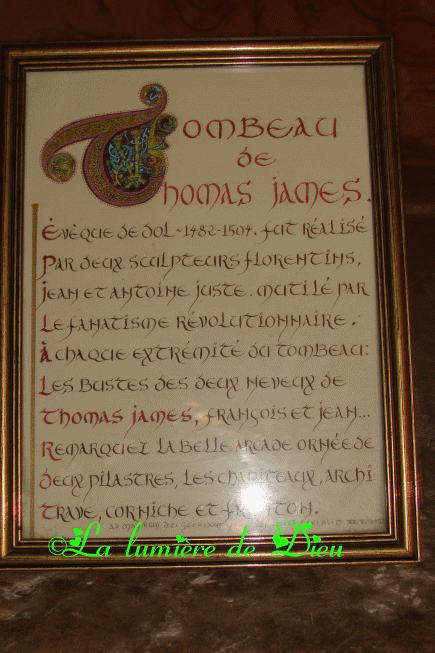 Tombeau
de
Thomas James.
Évêque de dol ~ 1482-1504. fut réalisé
par deux sculpteurs florentins,
jean et antoine juste. mutilé par
le fanatisme révolutionnaire.
À chaque extrémité du tombeau:
Les bustes des deux neveux de
Thomas James, françois et jean...
Remarquez la belle arcade ornée de
deux pilastres, les chapiteaux, archi
trave, corniche et fronton.
©La lumière de Dieu